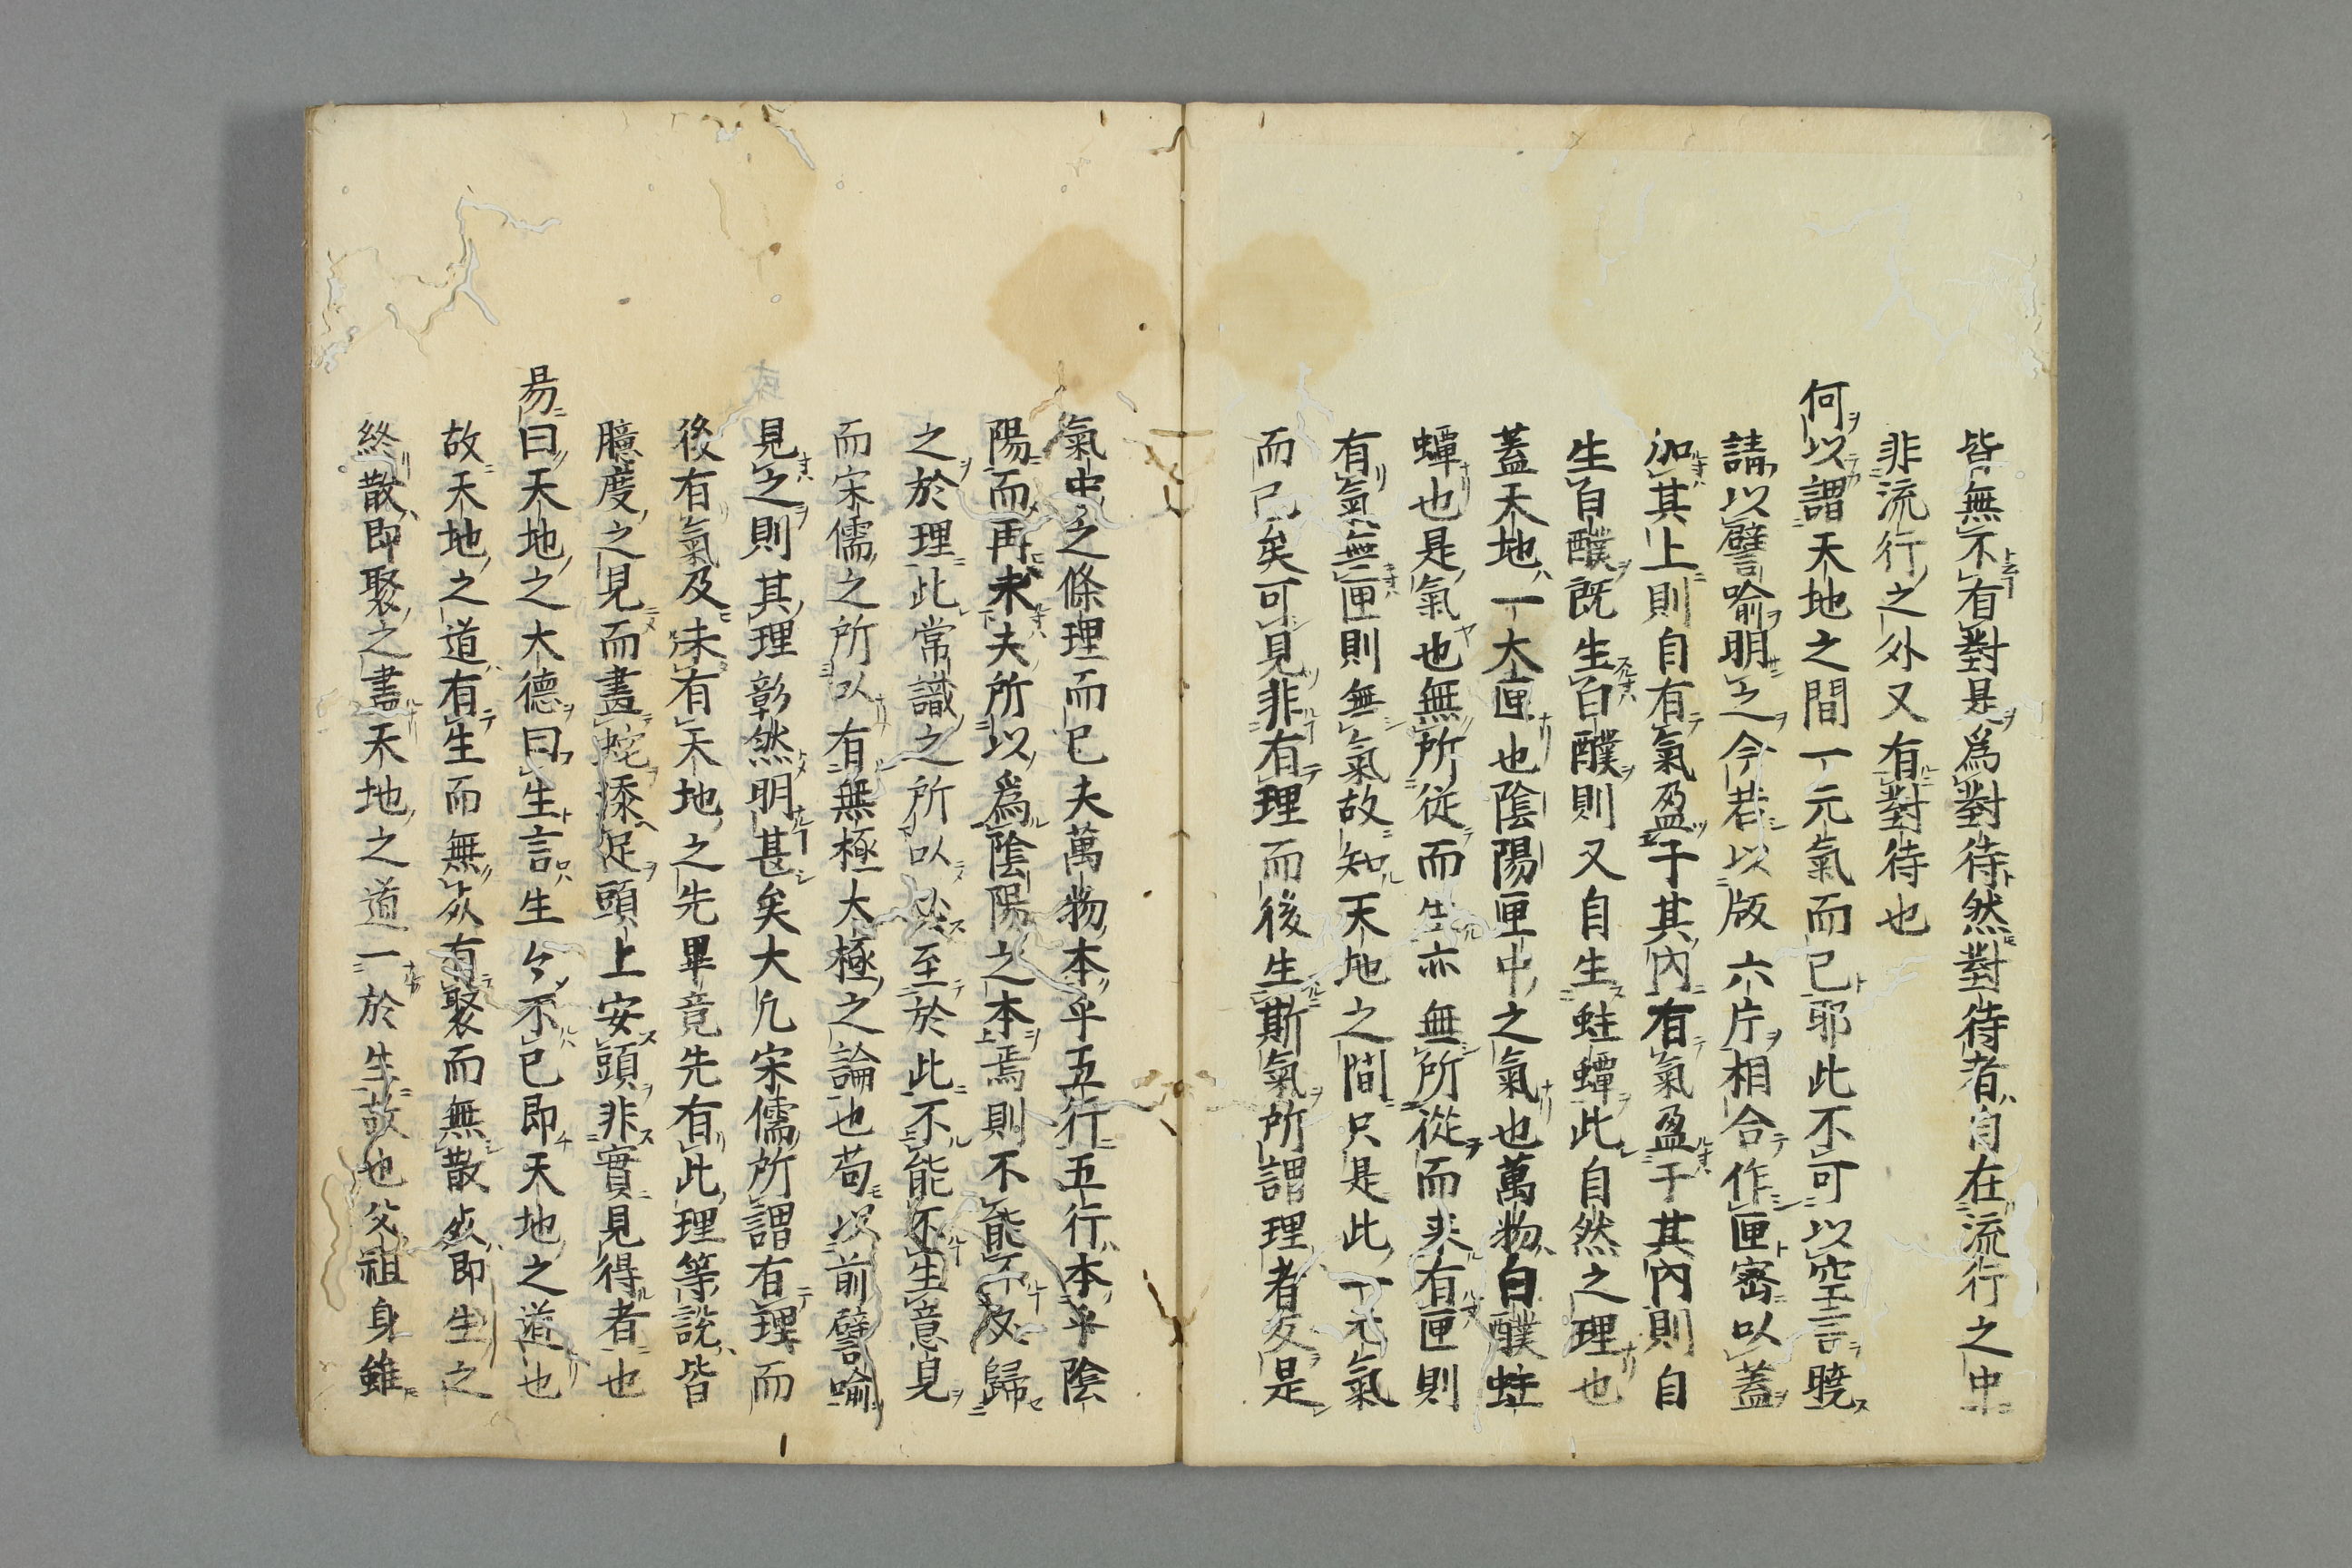 皆無不有對是爲對待然對待者自在流行之中
非流行之外又有對待也
何以謂天地之間一元氣而已耶此不可以空言曉
請以譬喻明之今若以版六片相合作匣密以蓋
加其上則自有氣盈于其內有氣盈于其內則自
生白醭既生白醭則又自生蛀蟫此自然之理也
蓋天地一大匣也陰陽匣中之氣也萬物白醭蛀
蟫也是氣也無所從而生亦無所從而來有匣則
有氣無匣則無氣故知天地之間只是此一元氣
而已矣可見非有理而後生斯氣所謂理者反是
氣中之條理而已夫萬物本乎五行五行本乎陰
陽而再求夫所以爲陰陽之本焉則不能不反歸
之於理此常識之所以必至於此不能不生意見
而宋儒之所以有無極太極之論也苟以前譬喻
見之則其理彰然明甚矣大凡宋儒所謂有理而
後有氣及未有天地之先畢竟先有此理等説皆
臆度之見而畫蛇添足頭上安頭非實見得者也
易曰天地之大德曰生言生生不已即天地之道也
故天地之道有生而無死有聚而無散死即生之
終散即聚之盡天地之道一於生故也父祖身雖